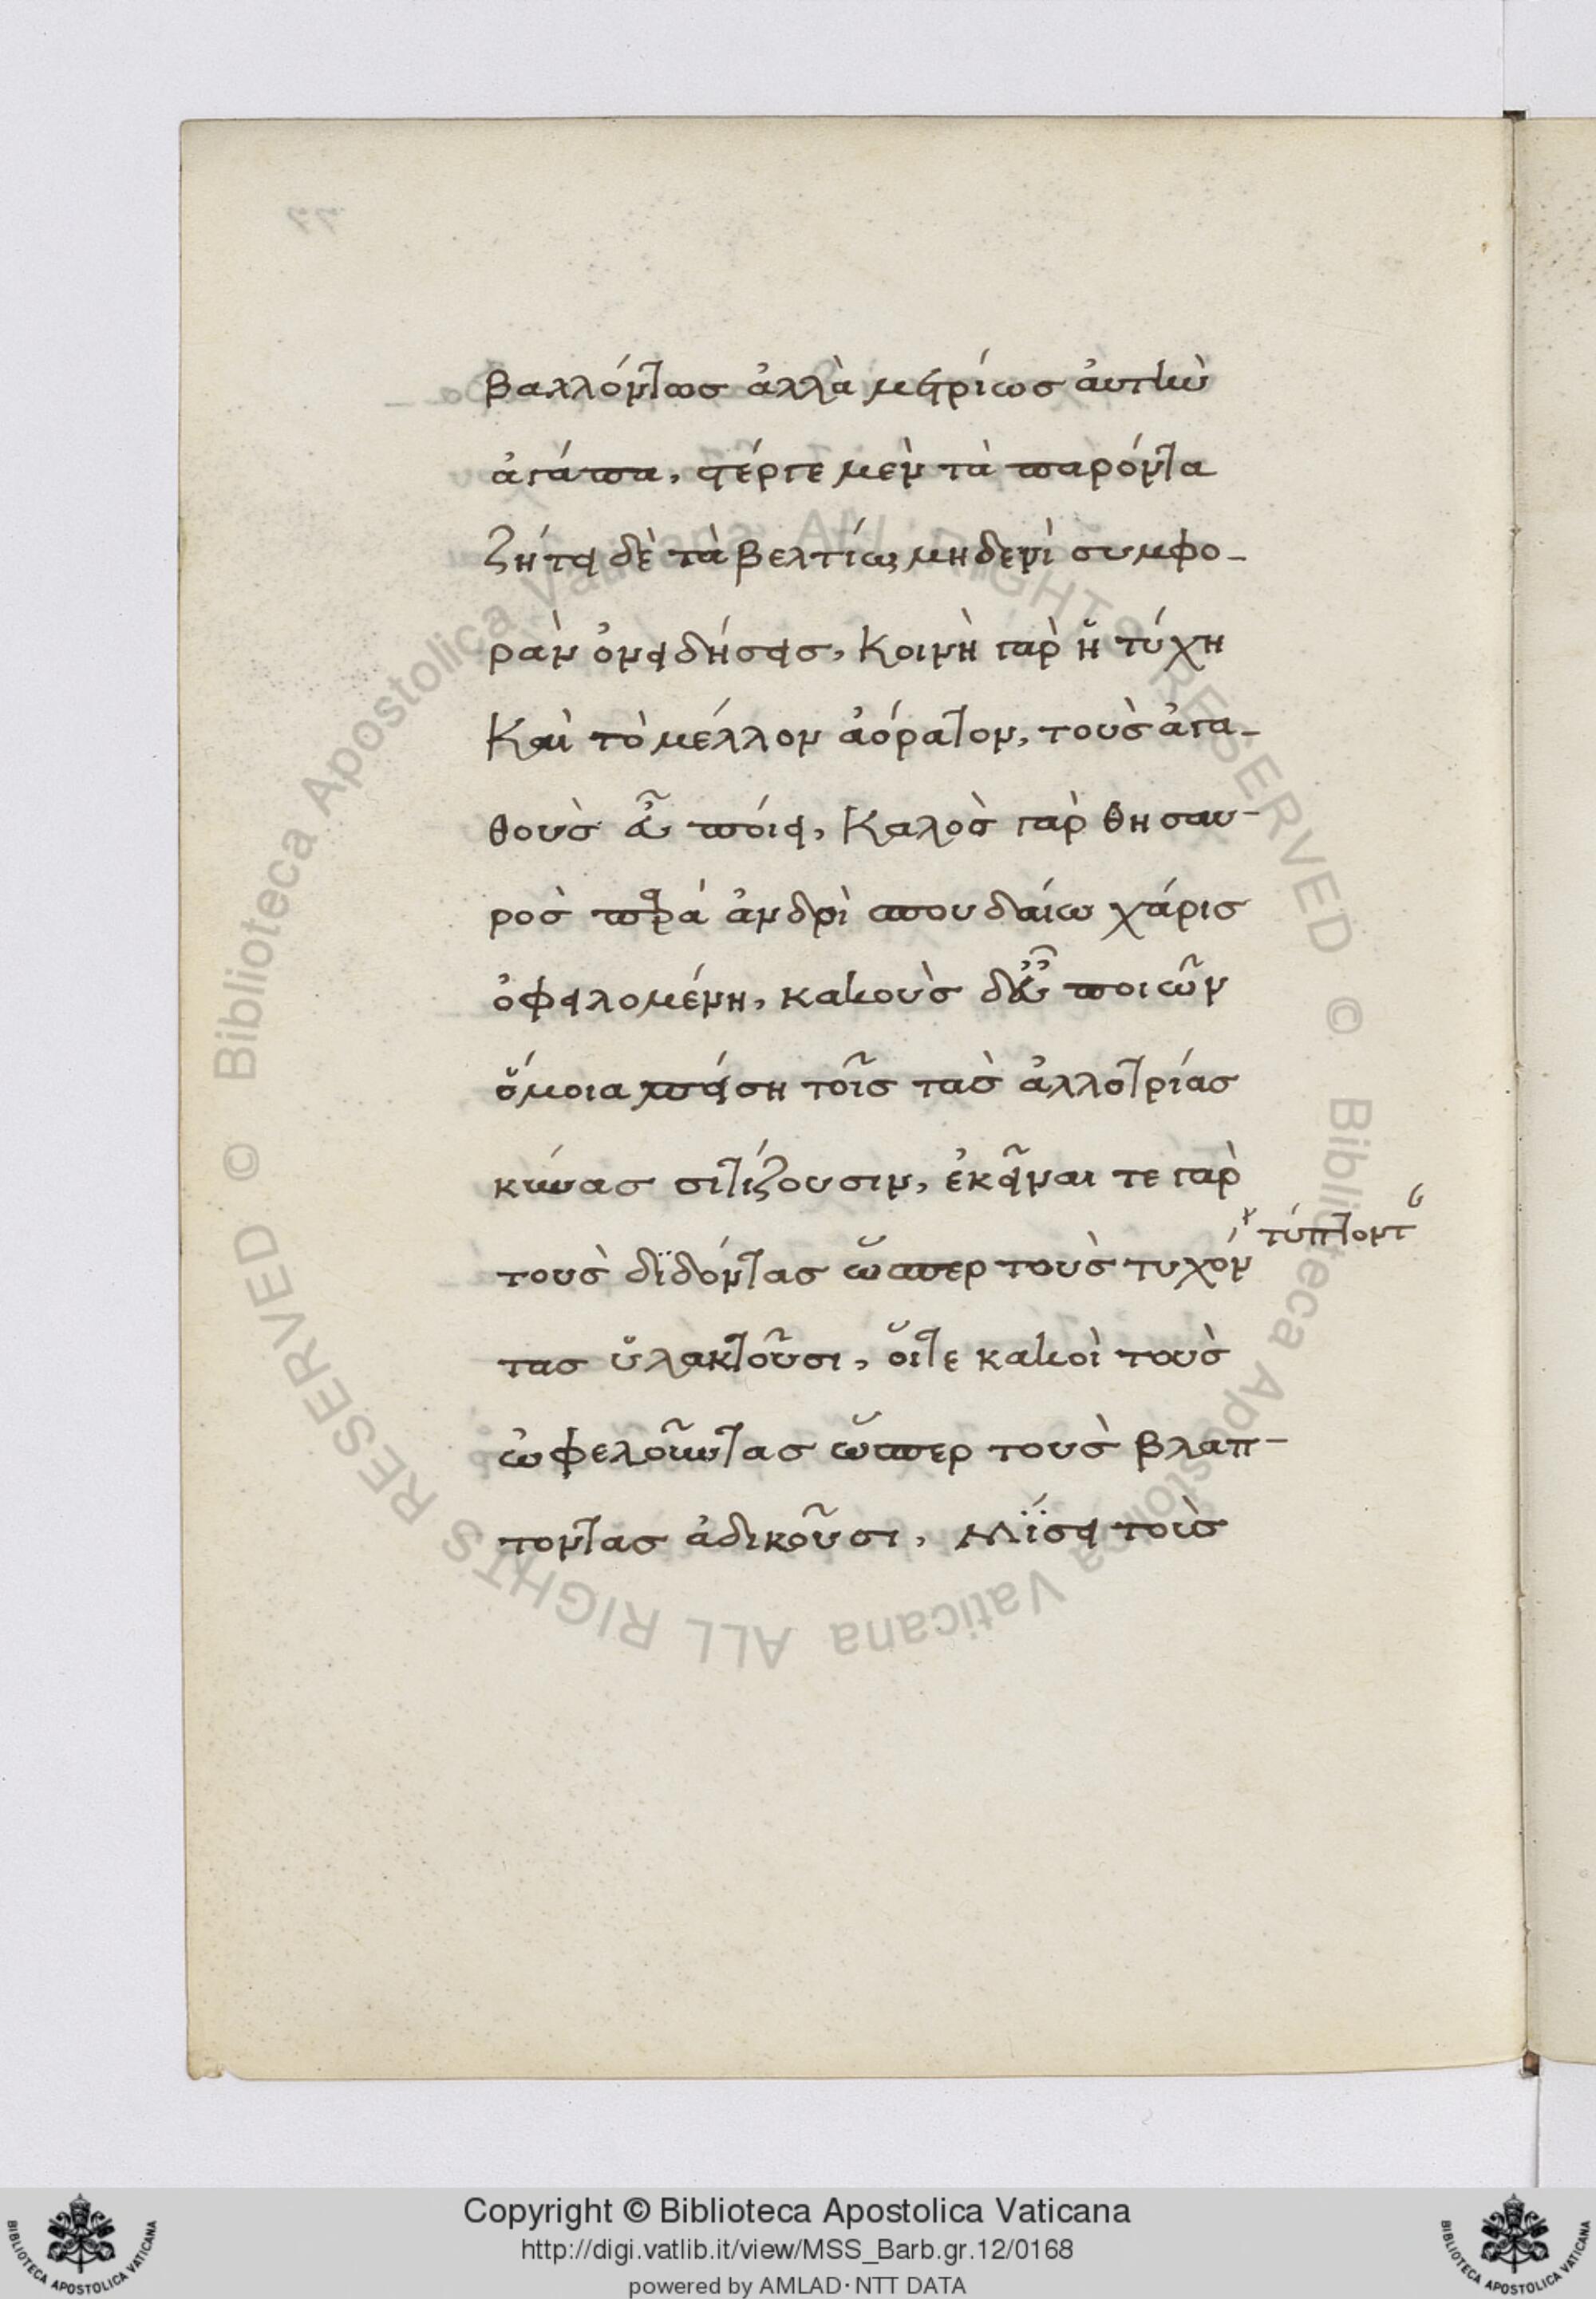 βαλλόντως ἀλλὰ μετρίως αὐτὴν
ἀγάπα, στέργε μὲν τὰ παρόντα
ζήτει δὲ τὰ βελτίω, μηδενὶ συμφο-
ρὰν ὀνειδήσεις, Κοινὴ γὰρ ἡ τύχη
Καὶ τὸ μέλλον ἀόρατον, τοὺς ἀγα-
θοὺς εὖ ποίει, Καλὸς γὰρ θησαυ-
ρὸς παρά ἀνδρὶ σπουδαίω χάρις
ὀφειλομένη, κακοὺς δ' εὖ ποιῶν
ὅμοια πείση τοῖς τὰς ἀλλοτρίας
κύνας σιτίζουσιν, ἐκεῖναι τε γὰρ
τύπτοντ
τοὺς διδόντας ὥσπερ τοὺς τυχόν
τας ὑλακτοῦσι, οἵτε κακοὶ τοὺς
ὠφελοῦντας ὥσπερ τοὺς βλαπ-
τοντας ἀδικοῦσι, Μΐσει τοὺς
Copyright © Biblioteca Apostolica Vaticana
http://digi.vatlib.it/view/MSS_Barb.gr.12/0168
powered by AMLAD·NTT DATA
BIBLIOTECA APOSTOLICA VATICANA
BIBLIOTECA APOSTOLICA VATICANA
© Biblioteca Apostolica Vaticana ALL RIGHTS RESERVED © Biblioteca Apostolica Vaticana ALL RIGHTS RESERVED